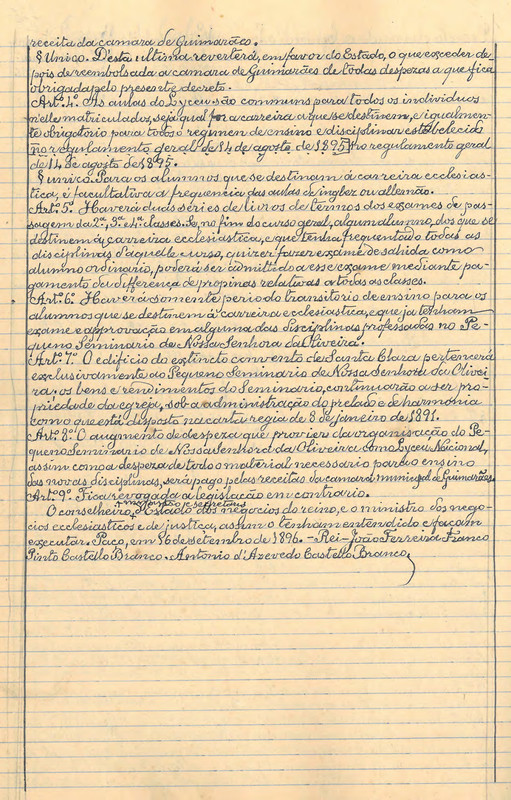 receita da camara de Guimarães.
§ Unico. D'esta ultima reverterá, em favor do Estado, o que exceder de-
pois de reembolsada a camara de Guimarães de todas despezas a que fica
obrigada pelo presente decreto.
Art.º 4.º As aulas do Lyceu são communs para todos os individuos
n'elle matriculados, seja qual for a carreira a que se destinem, e igualmen-
te obrigatorio para todos o regimen de ensino e disciplinar estabelecido
no regulamento geral de 14 de agosto de 1895 no regulamento geral
de 14 de agosto de 1895.
§ unico. Para os alumnos que se destinam á carreira ecclesias-
tica, é facultativa a frequencia das aulas de inglez ou allemão.
Art.º 5.º Haverá duas séries de livros de termos dos exames de pas-
sagem da 2.ª, 3.ª e 4.ª classes. Se, no fim do curso geral, algum alumno, dos que se
destinem á carreira ecclesiastica, e que tenha frequentado todas as
disciplinas d'aquelle curso, quizer fazer exame de sahida como
alumno ordinario, poderá ser admittido a esse exame mediante pa-
gamento da differença de propinas relativas a todas as classes.
Art.º 6.º Haverá somente periodo transitorio de ensino para os
alumnos que se destinem á carreira ecclesiastica, e que já tenham
exame e approvação em alguma das disciplinas professadas no Pe-
queno Seminario de Nossa Senhora da Oliveira.
Art.º 7.º O edificio do extincto convento de Santa Clara pertencerá
exclusivamente ao Pequeno Seminario de Nossa Senhora da Olivei-
ra: os bens e rendimentos do Seminario, continuarão a ser pro-
priedade da egreja, sob a administração do prelado e de harmonia
como que está disposto na carta regia de 8 de janeiro de 1891.
Art.º 8.º O augmento de despeza que provier da organisação do Pe-
queno Seminario de Nossa Senhora da Oliveira como Lyceu Nacional,
assim como a despeza de todo o material necessario para o ensino
das novas disciplinas, será pago pelas receitas da camara municipal de Guimarães
Art.º 9.º Fica revogada a legislação em contrario.
O conselheiro, ministro e secretario d'Estado dos negocios do reino, e o ministro dos nego-
cios ecclesiasticos e de justiça, assim o tenham entendido e façam
executar. Paço, em 16 de setembro de 1896. - Rei - João Ferreira Franco
Pinto Castello Branco - Antonio d'Azevedo Castello Branco